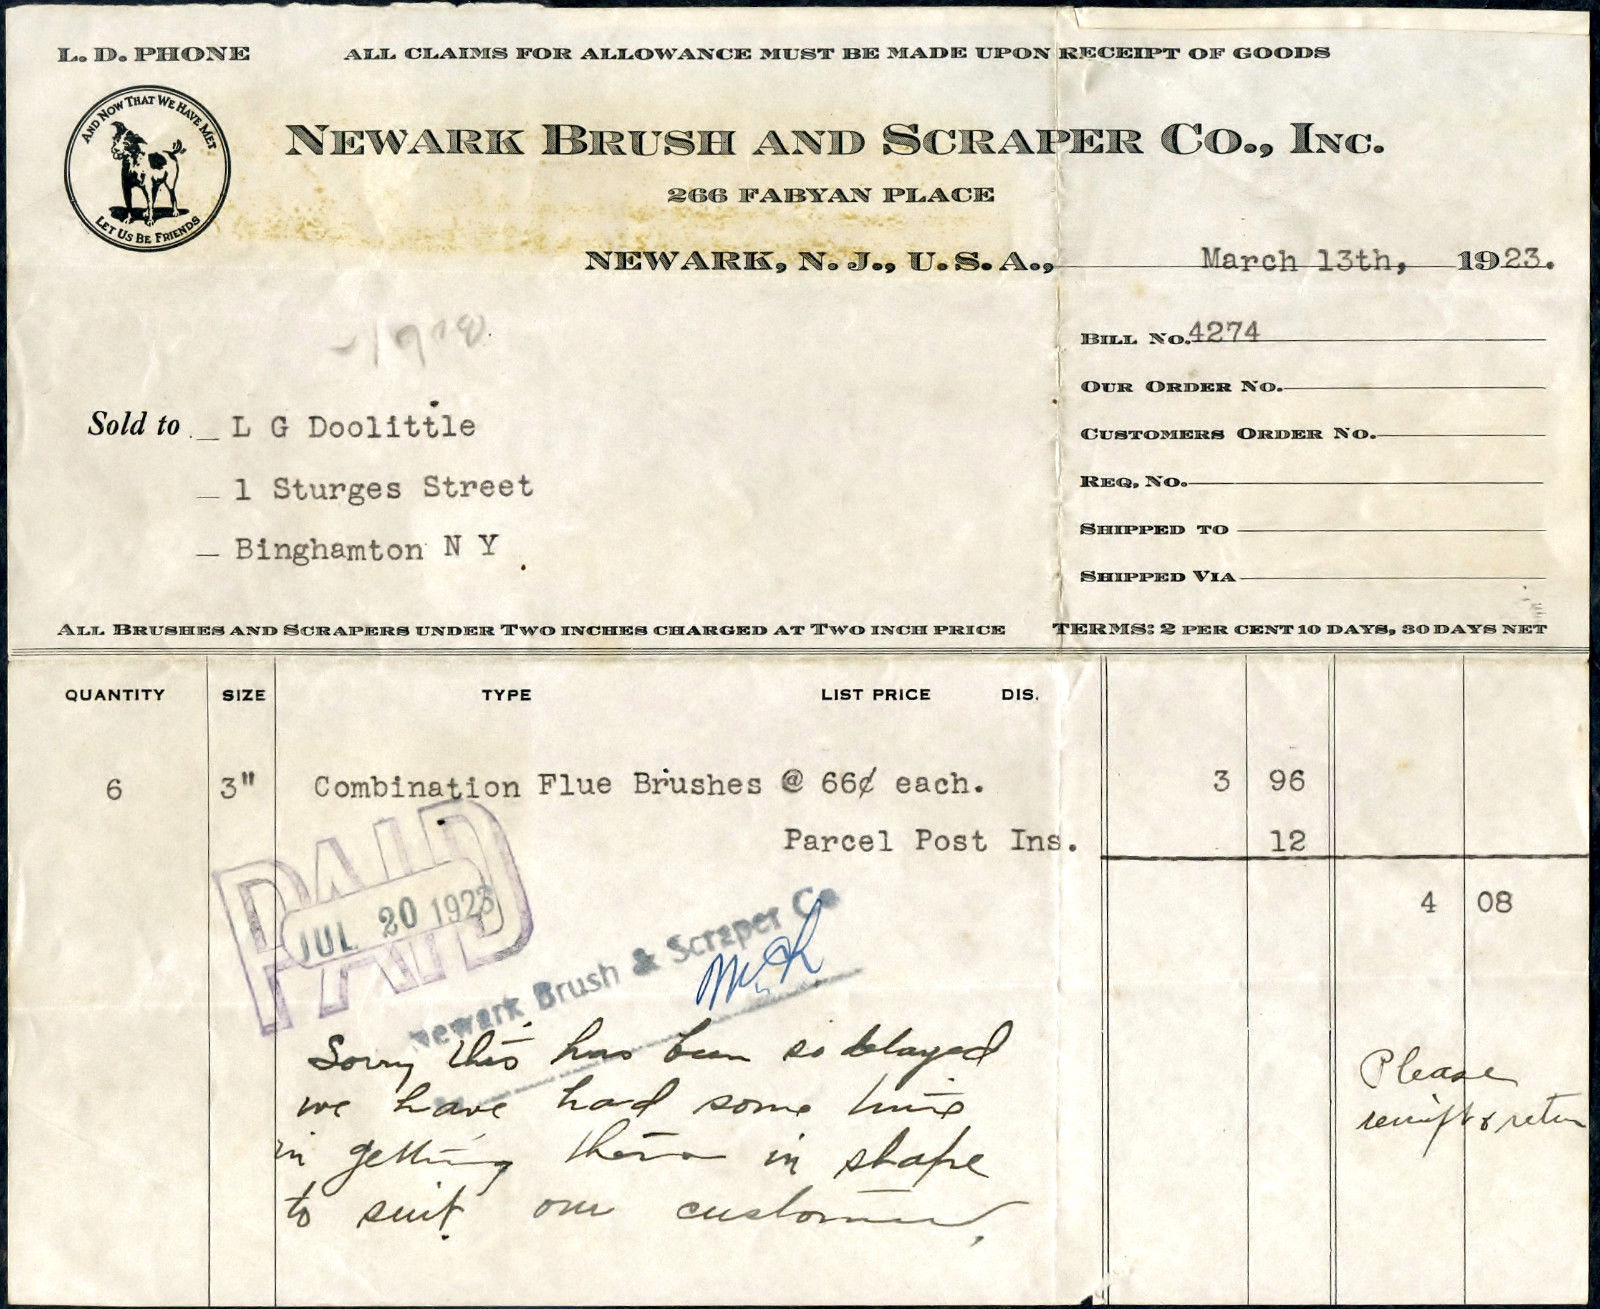 L. D. PHONE ALL CLAIMS FOR ALLOWANCE MUST BE MADE UPON RECEIPT OF GOODS
AND NOW THAT WE HAVE MET
LET US BE FRIENDS
NEWARK BRUSH AND SCRAPER CO., INC.
266 FABYAN PLACE
NEWARK, N. J., U. S. A., March 13th, 1923.
BILL NO. 4274
OUR ORDER NO.
CUSTOMERS ORDER NO.
REQ. NO.
SHIPPED TO
SHIPPED VIA
Sold to L G Doolittle
1 Sturges Street
Binghamton N Y
ALL BRUSHES AND SCRAPERS UNDER TWO INCHES CHARGED AT TWO INCH PRICE TERMS: 2 PER CENT 10 DAYS, 30 DAYS NET
QUANTITY SIZE TYPE LIST PRICE DIS.
6 3" Combination Flue Brushes @ 66¢ each. 3 96
Parcel Post Ins. 12
4 08
PAID
JUL 20 1923
Newark Brush & Scraper Co
Sorry this has been so delayed
we have had some time
in getting them in shape
to suit our customers
Please
receipt & return